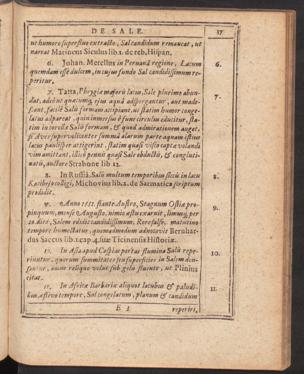 DE SALE. 37
ut humore superfluo extracto, Sal candidum remaneat, ut
narrat Marineus Siculus lib.1. de reb. Hispan.
6. Johan. Metellus in Peruanâ regione, Lacum 6.
quemdam esse dulcem, in cujus fundo Sal candidissimum re-
peritur.
7. Tatta, Phrygiæ majoris lacus, Sale plurimo abun- 7.
dat, adeò ut quacunq, ejus aquâ adspergantur, aut made-
fiant, facilè Salis formam accipiant, ut statim humor conge-
latus alpareat, quin immersus è fune circulus educitur, sta-
tim in torosse Salis formam, & quod admirationem auget,
si Aves supervolitantes summâ alarum parte aquam istius
lacus paulisper attigerint, statim quasi visco captæ volandi
vim amittant, illicò pennis quasi Sale obductis, & congluti-
natis, auctore Strabone lib 12.
8. In Russiâ Salis multum temporibus siccis in lacu 8.
Katzibejo colligi, Michovius lib.2. de Sarmatica scriptum
prodidit.
9. Anno 1551. flante Austro, Stagnum Ostiæ pro- 9.
pinquum, mense Augusto, nimis æstu exaruit, limusq, per
20. dies, Salem edidit candidissimum. Rore salso, matutino
tempore humectatus, quemadmodum adnotavit Bernhar-
dus Saccus lib.1. cap.4. suæ Ticinensis Historiæ.
10. In Asia apud Caspias portas flumina Salis repe- 10.
riuntur, quorum summitates seu superficies in Salem den-
sentur, amne reliquo velut sub gelu fluente, ut Plinius
citat.
11. In Africæ Barbariæ aliquot lacubus & paludi- 11.
bus, æstivo tempore, Sal congelatum, planum & candidum
E 3 reperiri,